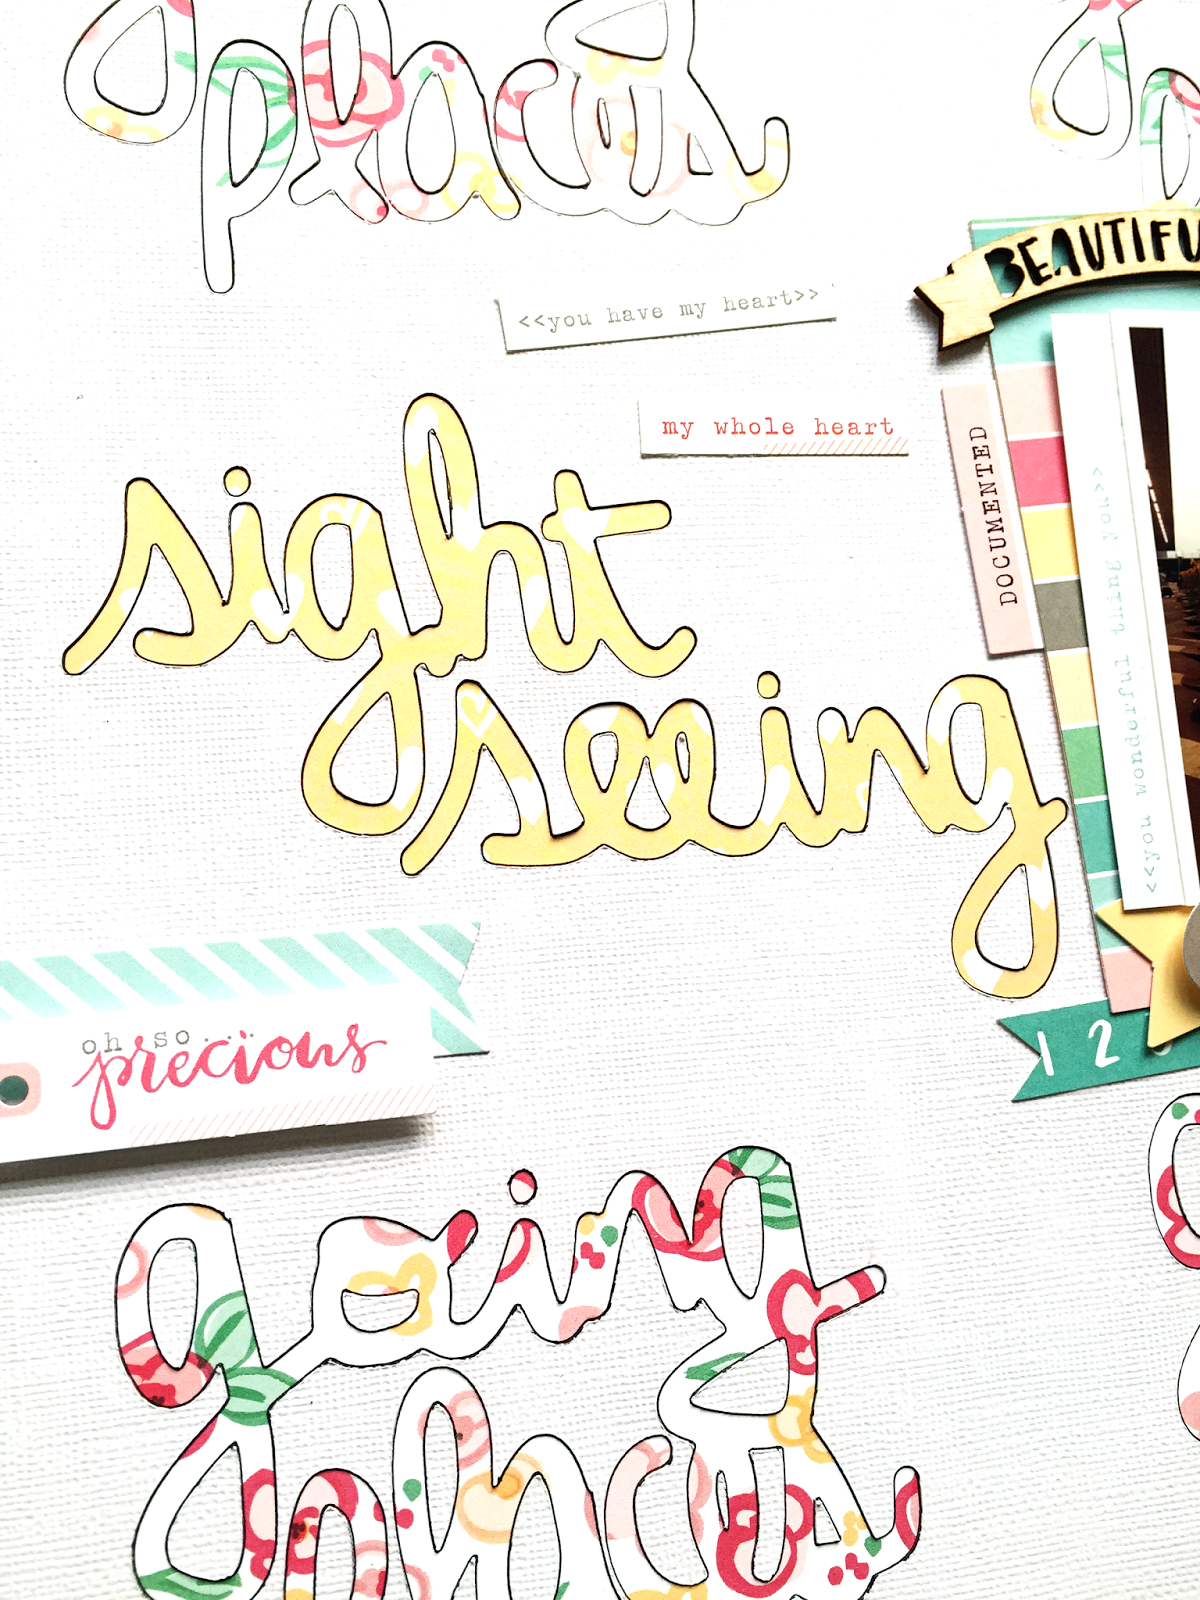 places
BEAUTIFU
<<you have my heart>>
my whole heart
DOCUMENTED
<<you wonderful thing you>>
sight
seeing
1 2
oh so...
precious
going
places